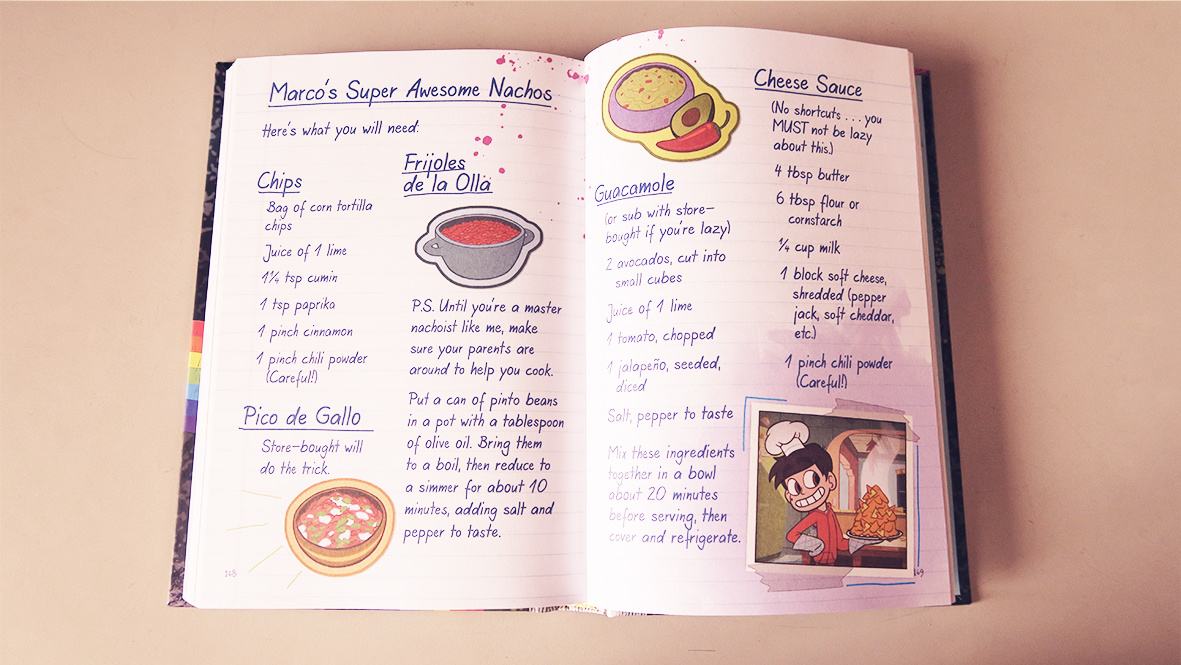 Marco's Super Awesome Nachos
Here's what you will need:
Chips
Bag of corn tortilla
chips
Juice of 1 lime
1¼ tsp cumin
1 tsp paprika
1 pinch cinnamon
1 pinch chili powder
(Careful!)
Pico de Gallo
Store-bought will
do the trick.
168
Frijoles
de la Olla
P.S. Until you're a master
nachoist like me, make
sure your parents are
around to help you cook.
Put a can of pinto beans
in a pot with a tablespoon
of olive oil. Bring them
to a boil, then reduce to
a simmer for about 10
minutes, adding salt and
pepper to taste.
Guacamole
(or sub with store-
bought if you're lazy)
2 avocados, cut into
small cubes
Juice of 1 lime
1 tomato, chopped
1 jalapeño, seeded,
diced
Salt, pepper to taste
Mix these ingredients
together in a bowl
about 20 minutes
before serving, then
cover and refrigerate.
Cheese Sauce
(No shortcuts . . . you
MUST not be lazy
about this.)
4 tbsp butter
6 tbsp flour or
cornstarch
¼ cup milk
1 block soft cheese,
shredded (pepper
jack, soft cheddar,
etc.)
1 pinch chili powder
(Careful!)
169